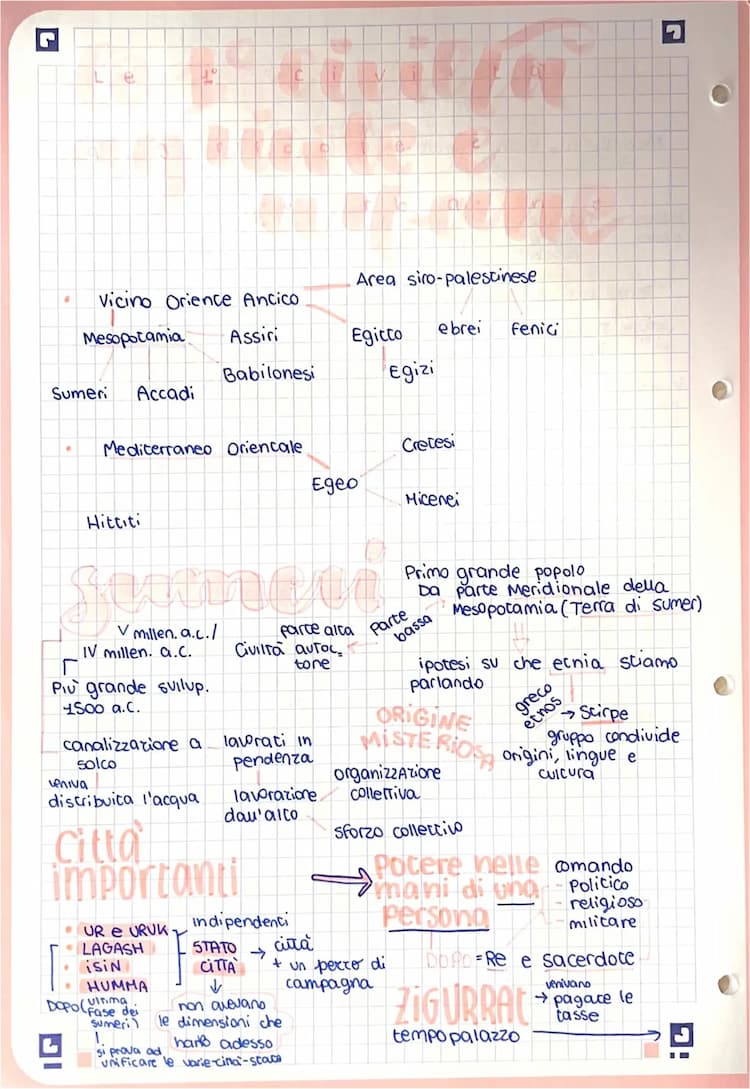 Le 1° civiltà
agricole e
urbane
Vicino Oriente Antico
Area siro-palestinese
Mesopotamia
Assiri
Egitto
ebrei
Fenici
Babilonesi
Egizi
Sumeri
Accadi
Mediterraneo Orientale
Cretesi
Egeo
Micenei
Hittiti
sumeri
Primo grande popolo
Da parte Meridionale della
Mesopotamia (Terra di sumer)
V millen. a.c. /
IV millen. a.c.
Parte alta
Parte bassa
Civiltà autoc=
tone
Più grande svilup.
1500 a.C.
ipotesi su che etnia stiamo
parlando
greco
etnos
→ Stirpe
gruppo condivide
origini, lingue e
cultura
ORIGINE
MISTERIOSA
canalizzazione a
solco
veniva
distribuita l'acqua
lavorati in
pendenza
lavorazione
dall'alto
organizzazione
collettiva
sforzo collettivo
Città
importanti
Potere nelle
mani di una
persona
comando
- Politico
- religioso
- militare
DOPO = Re e sacerdote
UR e URUK
LAGASH
ISIN
HUMMA
indipendenti
STATO
CITTÀ
→ città
+ un pezzo di
campagna
non avevano
le dimensioni che
hanno adesso
DOPO (ultima
fase dei
sumeri)
si prova ad
unificare le varie città-stato
ZIGURRAT
tempo palazzo
venivano
→ pagate le
tasse